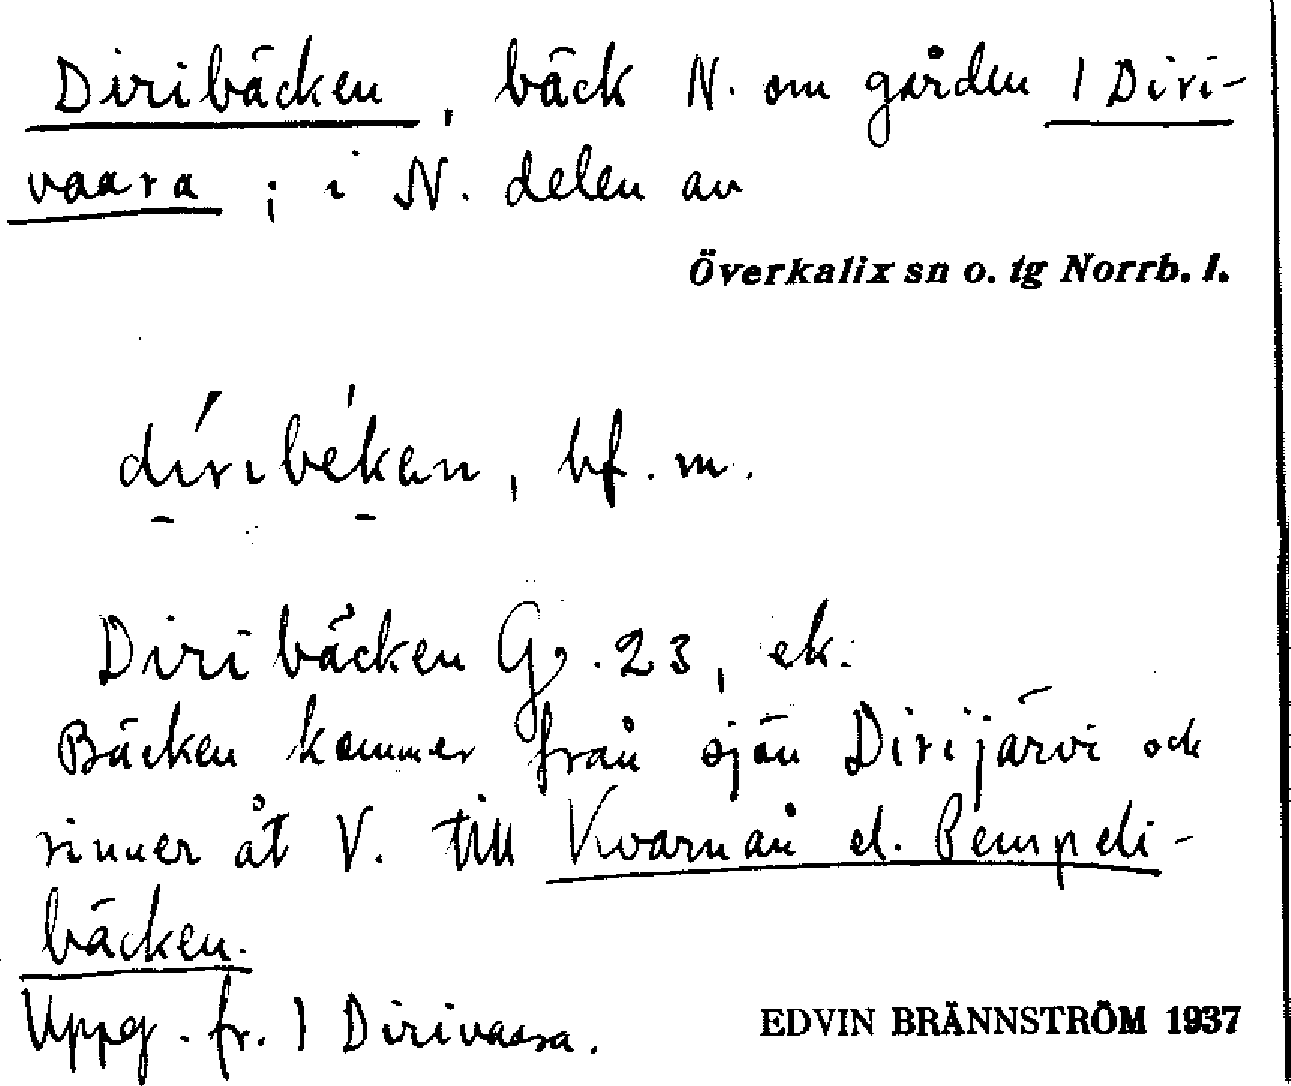 Diribäcken, bäck N. om gården 1 Diri-
vaara; i N. delen av
Överkalix sn o. tg Norrb. l.
díribékan, bf. m.
Diribäcken Gs. 23, ek.
Bäcken kommer från sjön Dirijärvi och
rinner åt V. till Kvarnån el. Pempeli-
bäcken.
Uppg. fr. 1 Dirivaara.
EDVIN BRÄNNSTRÖM 1937